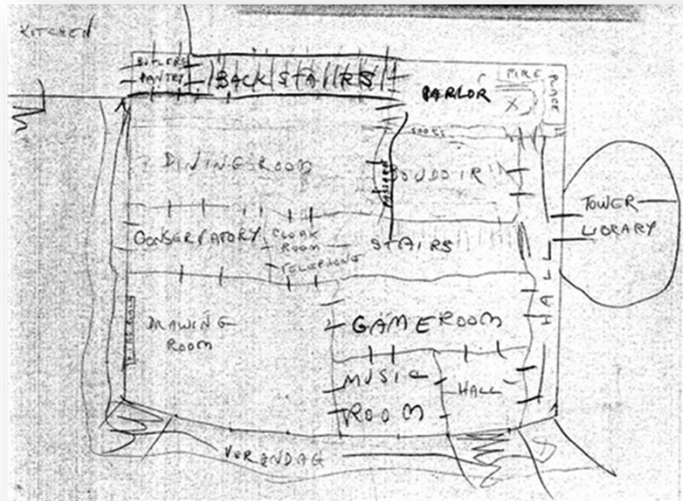 KITCHEN
BUTLERS
PANTRY
BACK STAIRS
PARLOR
FIRE
PLACE
X
DINING ROOM
BOUDOIR
TOWER
LIBRARY
CONSERVATORY
CLOAK
ROOM
TELEPHONE
STAIRS
HALL
DRAWING
ROOM
GAME ROOM
MUSIC
ROOM
HALL
VERANDAG